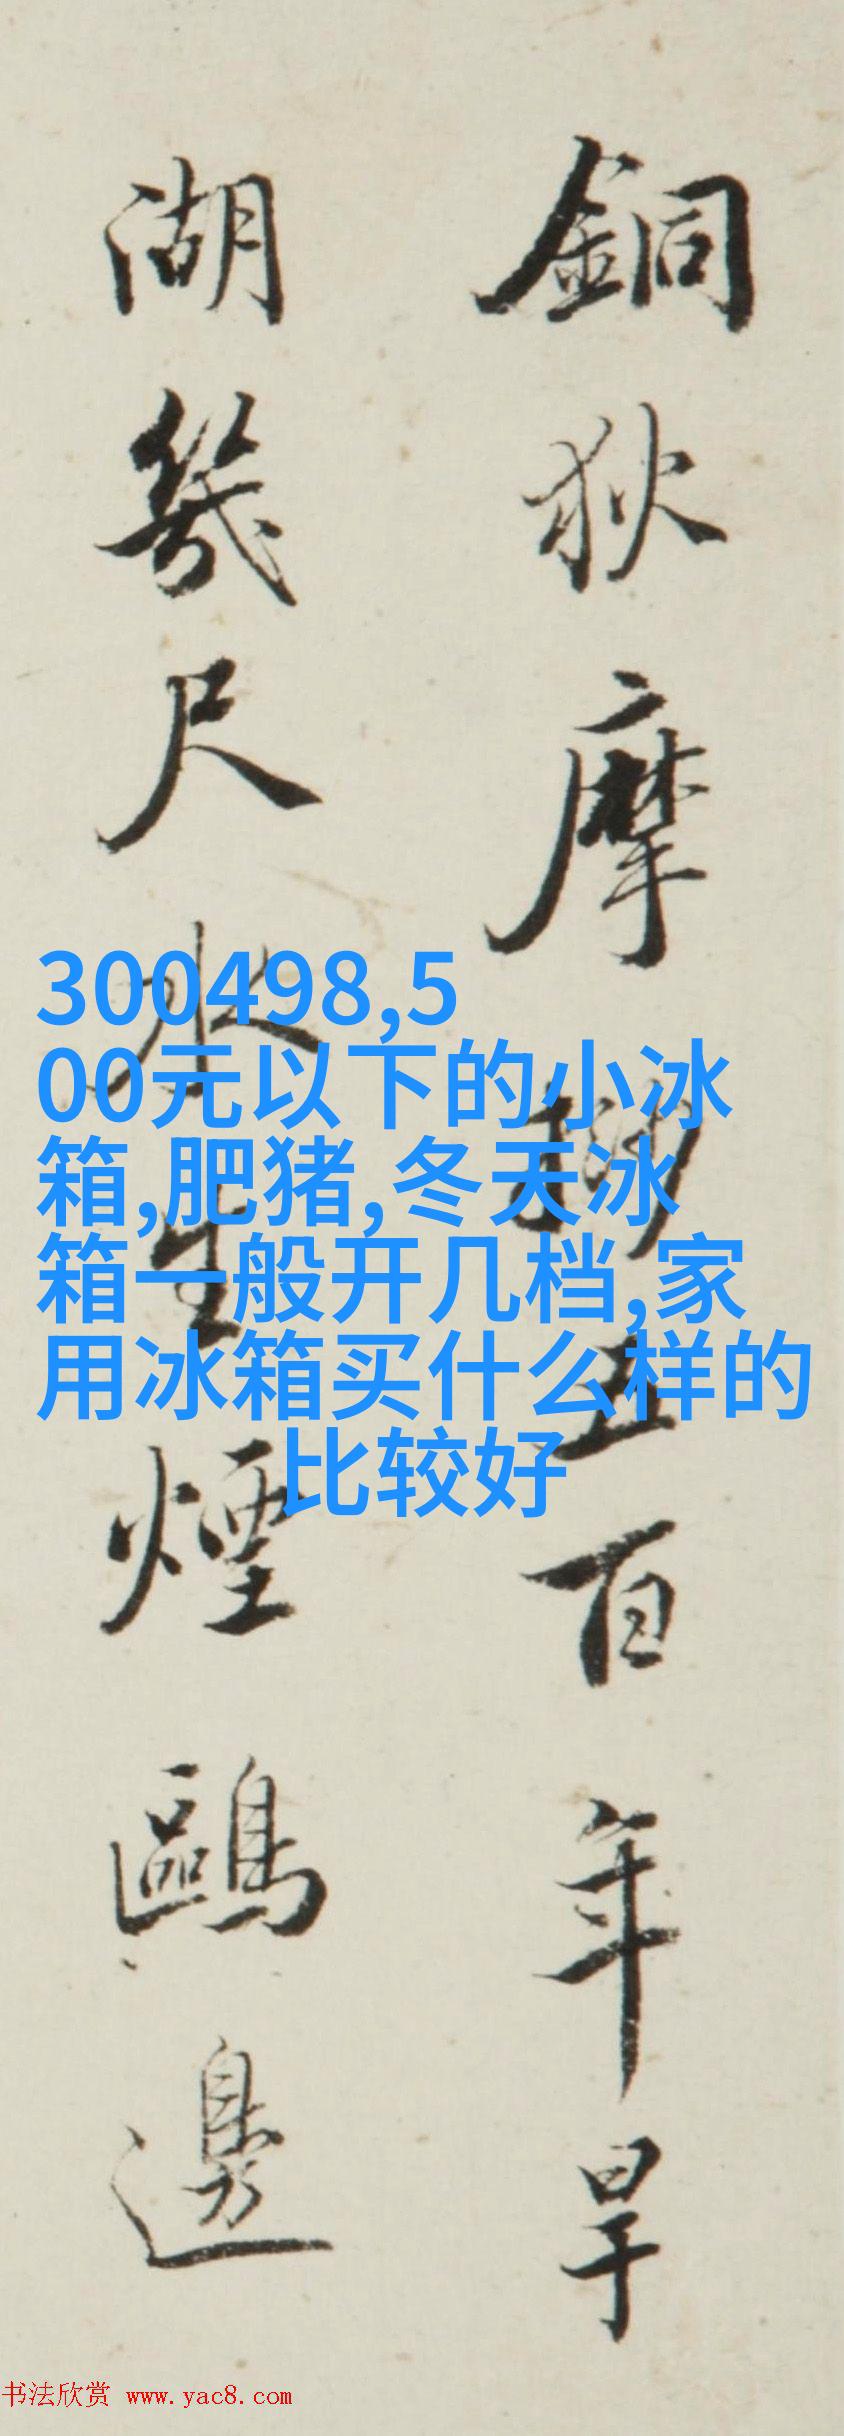 銅狄摩挱五百年早
湖幾尺水生煙鷗邊
300498,5
00元以下的小冰
箱,肥猪,冬天冰
箱一般开几档,家
用冰箱买什么样的
比较好
书法欣赏 www.yac8.com